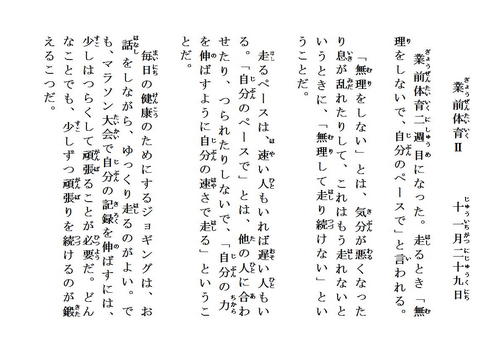 業前体育Ⅱ　　十一月二十九日
業前体育二週目になった。走るとき「無
理をしないで、自分のペースで」と言われる。
「無理をしない」とは、気分が悪くなった
り息が乱れたりして、これはもう走れないと
いうときに、「無理して走り続けない」とい
うことだ。
走るペースは、速い人もいれば遅い人もい
る。「自分のペースで」とは、他の人に合わ
せたり、つられたりしないで、「自分の力
を伸ばすように自分の速さで走る」というこ
とだ。
毎日の健康のためにするジョギングは、お
話をしながら、ゆっくり走るのがよい。で
も、マラソン大会で自分の記録を伸ばすには、
少しはつらくして頑張ることが必要だ。どん
なことでも、少しずつ頑張りを続けるのが鍛
えるこつだ。